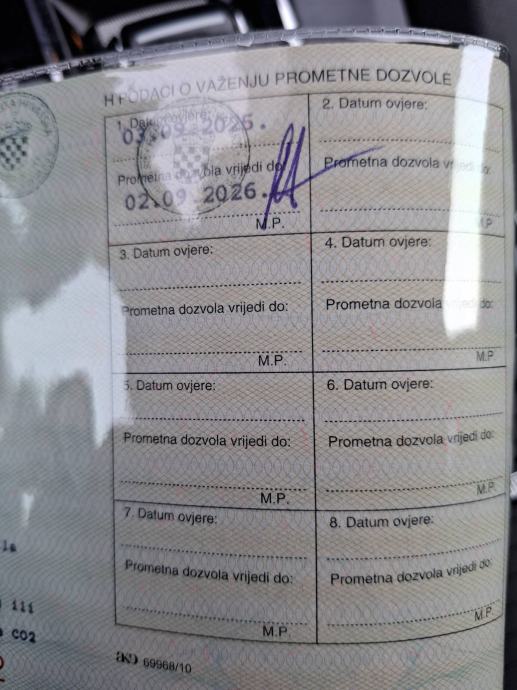 H PODACI O VAŽENJU PROMETNE DOZVOLE
1. Datum ovjere:
03.09.2025.
Prometna dozvola vrijedi do:
02.09.2026.
M.P.
2. Datum ovjere:
Prometna dozvola vrijedi do:
M.P.
3. Datum ovjere:
Prometna dozvola vrijedi do:
M.P.
4. Datum ovjere:
Prometna dozvola vrijedi do:
M.P.
5. Datum ovjere:
Prometna dozvola vrijedi do:
M.P.
6. Datum ovjere:
Prometna dozvola vrijedi do:
M.P.
7. Datum ovjere:
Prometna dozvola vrijedi do:
M.P.
8. Datum ovjere:
Prometna dozvola vrijedi do:
M.P.
CO2
AKD 69968/10